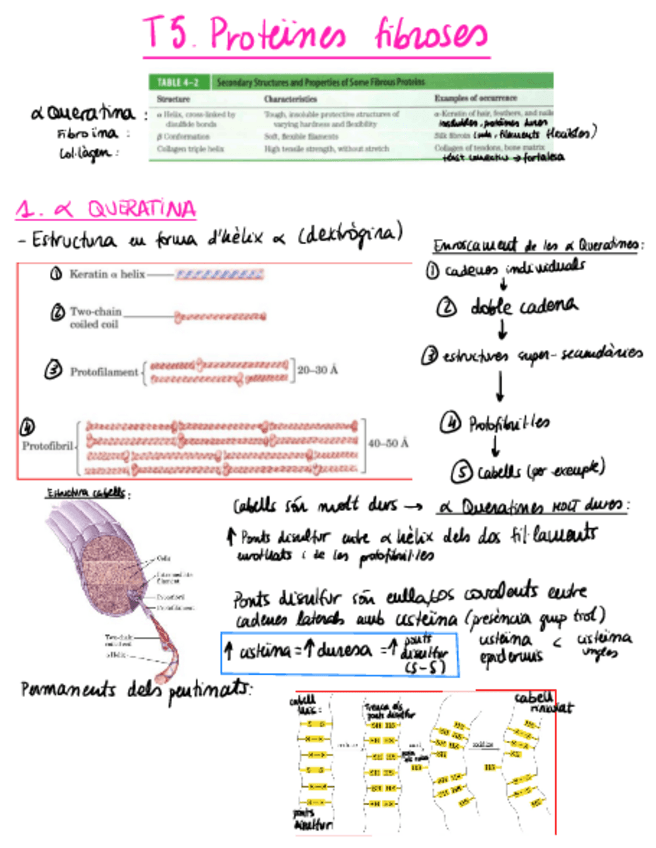 T5. Proteïnes fibroses
TABLE 4-2 Secondary Structures and Properties of Some Fibrous Proteins
Structure Characteristics Examples of occurrence
α Queratina : α Helix, cross-linked by disulfide bonds Tough, insoluble protective structures of varying hardness and flexibility α-Keratin of hair, feathers, and nails
insolubles, proteïnes dures
Fibroina : β Conformation Soft, flexible filaments Silk fibroin (seda, filaments flexibles)
Col·làgen : Collagen triple helix High tensile strength, without stretch Collagen of tendons, bone matrix
teixit conectiu → fortalesa
1. α QUERATINA
- Estructura en forma d'hèlix α (dextrògira)
① Keratin α helix
② Two-chain
coiled coil
③ Protofilament 20–30 Å
④
Protofibril 40–50 Å
Enroscament de les α Queratines:
① cadenes individuals
↓
② doble cadena
↓
③ estructures super-secundàries
↓
④ Protofibril·les
↓
⑤ Cabells (per exemple)
Estructura cabells:
Cells
Intermediate
filament
Protofibril
Protofilament
Two-chain
coiled coil
α Helix
Cabells són molt durs → α Queratines MOLT dures:
↑ Ponts disulfur entre α hèlix dels dos fil·laments
enrotllats i de les protofibril·les
Ponts disulfur són enllaços covalents entre
cadenes laterals amb cisteïna (presència grup tiol)
↑ cisteïna = ↑ duresa = ↑ ponts
disulfur
(S-S)
cisteïna < cisteïna
epidermis ungles
Permanents dels pentinats:
cabell
llis:
Trenca els
ponts disulfur
cabell
rinxolat
S S
SH HS
ponts
disulfur